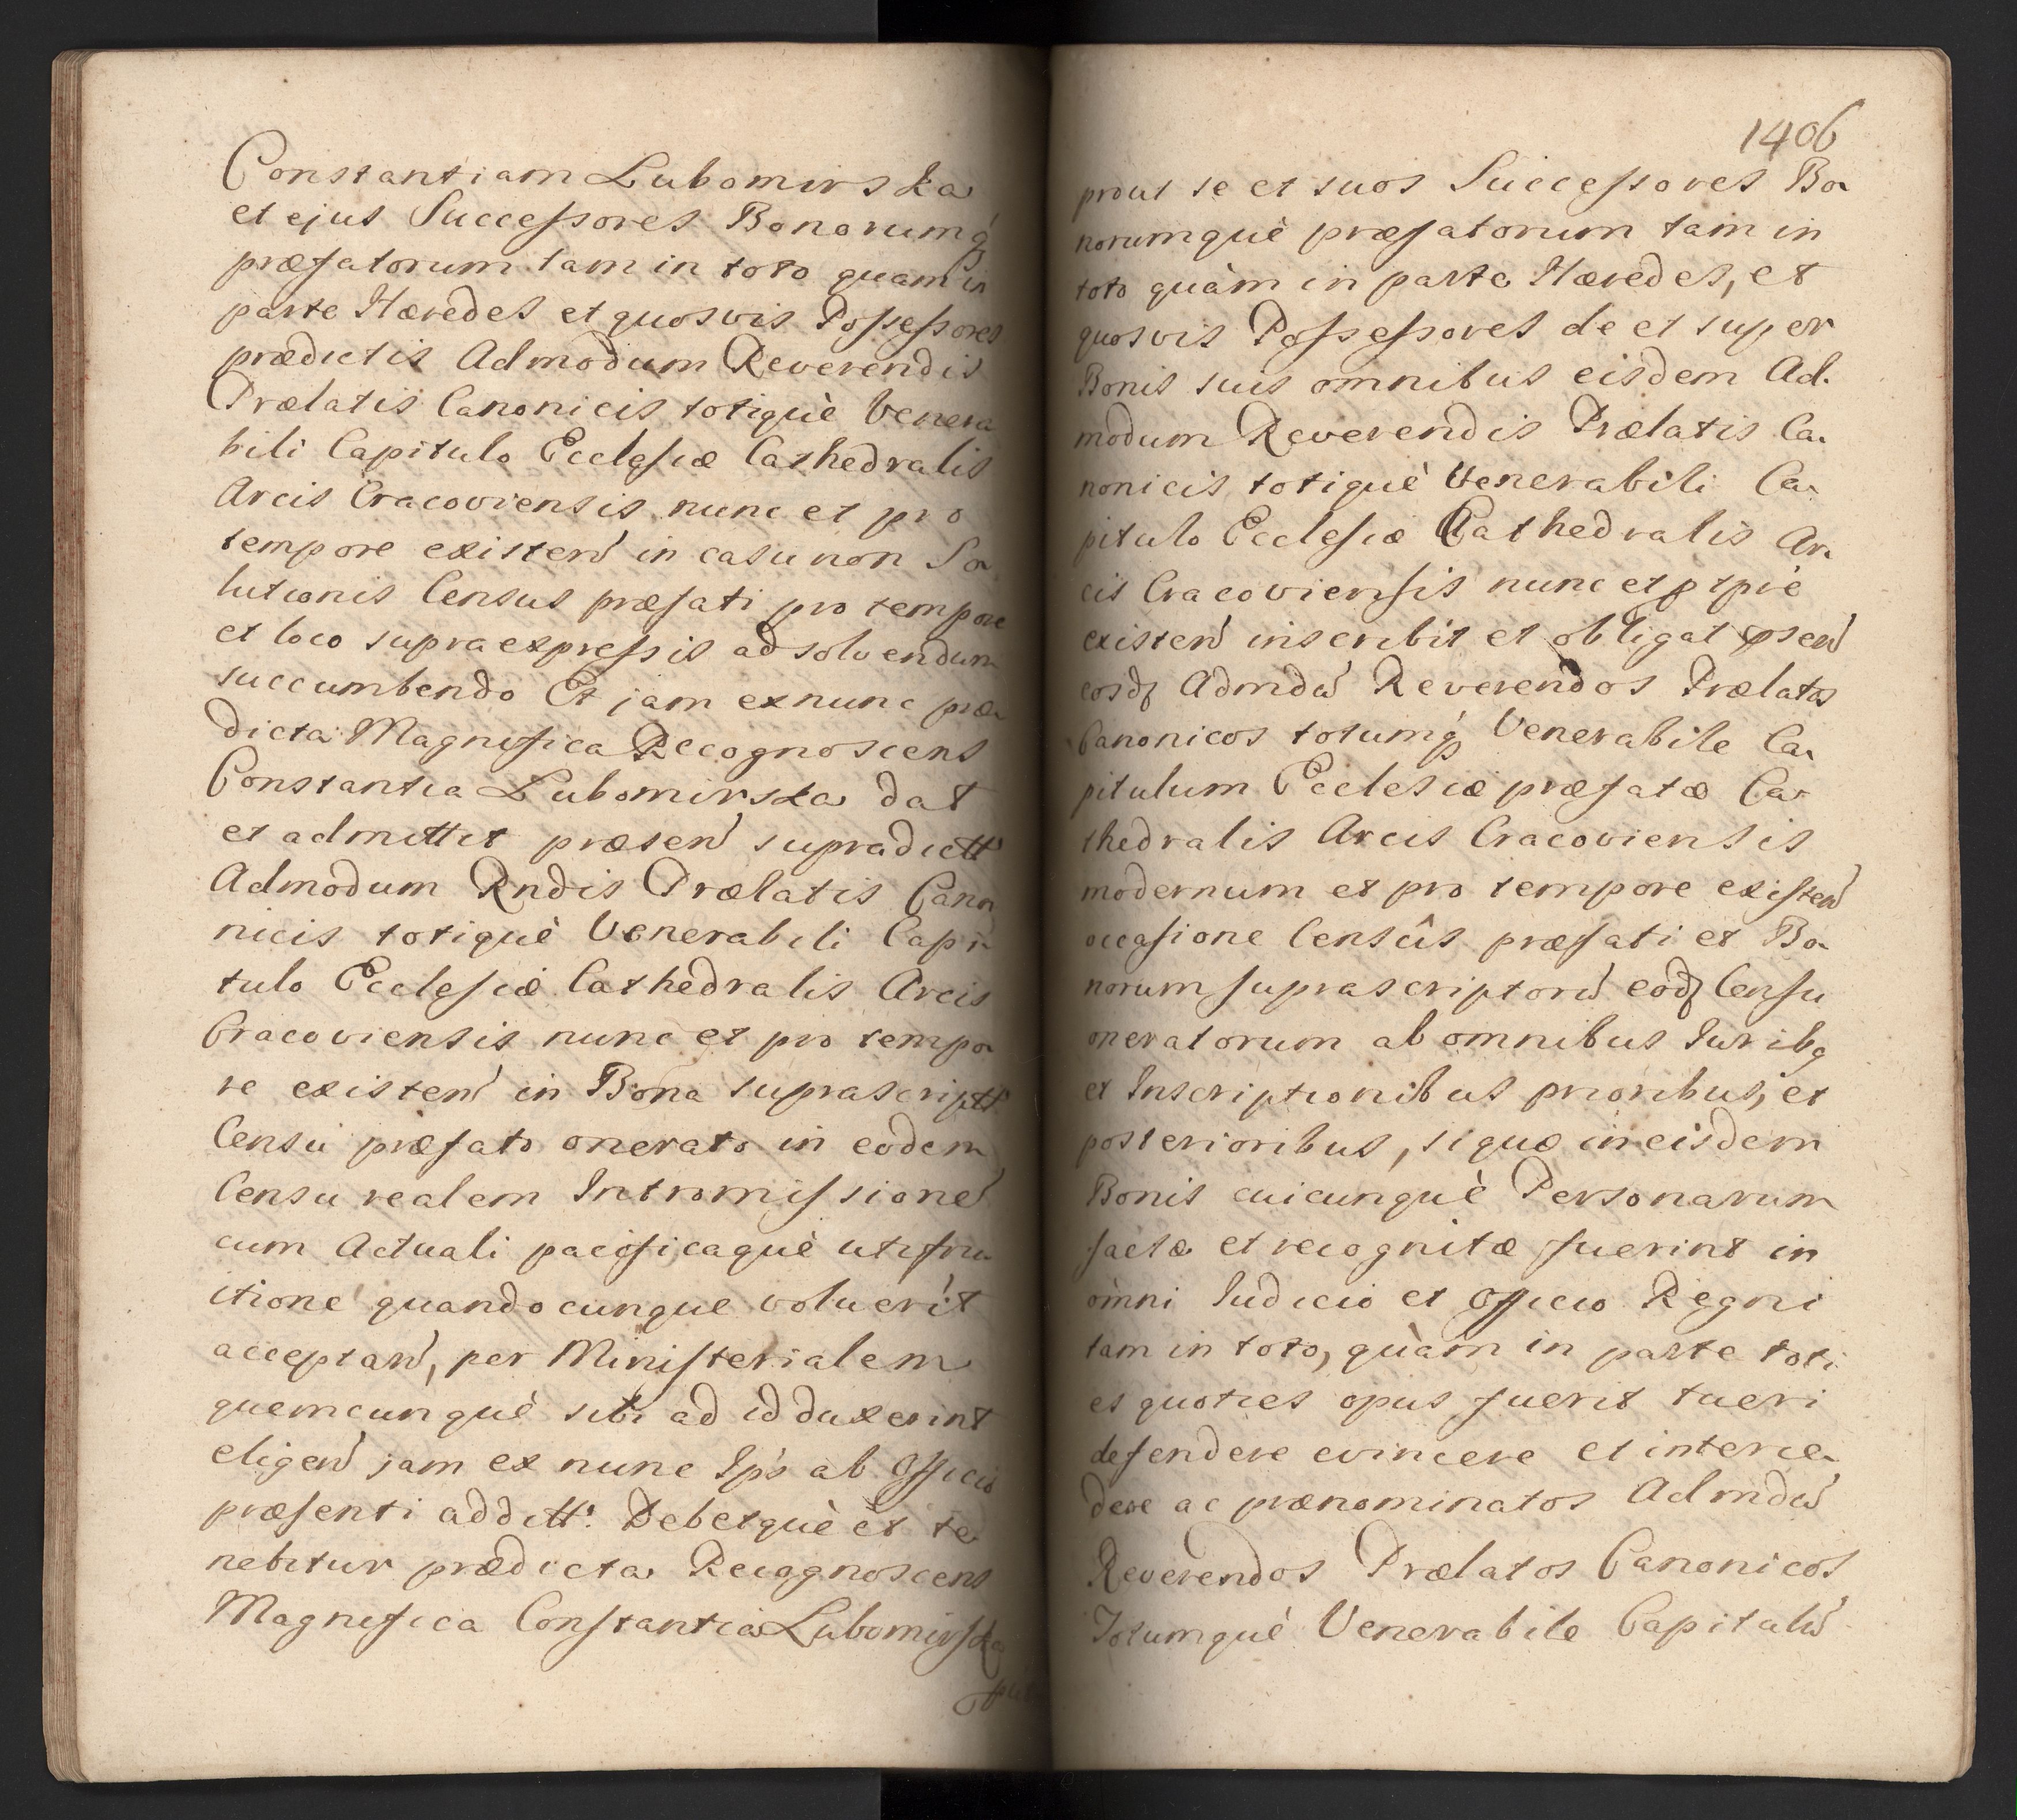 Constantiam Lubomirska
et ejus Successores Bonorumq́
præfatorum tam in toto quam in
parte Hæredes et quosvis Possessores
prædictis Admodum Reverendis
Prælatis Canonicis totiquè Venera
bili Capitulo Ecclesiæ Cathedralis
Arcis Cracoviensis nunc et pro
tempore existen̄ in casu non So
lutionis Census præfati pro tempore
et loco supraexpressis adsolvendum
succumbendo Et jam exnunc præ
dicta Magnifica Recognoscens
Constantia Lubomirska dat
et admittit præsen̄ supradictt
Admodum Rndis Prælatis Cano
nicis totiquè Venerabili Capi
tulo Ecclesiæ Cathedralis Arcis
Cracoviensis nunc et pro tempo
re existen̄ in Bona suprascriptt
Censu præfato onerato in eodem
Censu realem Intromissionē
cum Actuali pacificaquè utifru
itione quandocunque voluerit
acceptan̄, per Ministerialem
quemcunquè sibi ad id duxerint
eligen̄ jam ex nunc Ips̄ ab Officio
præsenti additt. Debetquè et te
nebitur prædicta Recognoscens
Magnifica Constantia Lubomirska
1406
prout se et suos Successores Bo
norumquè præfatorum tam in
toto quàm in parte Hæredes, et
quosvis Possessores de et super
Bonis suis omnibus eisdem Ad
modum Reverendis Prælatis Ca
nonicis totiquè Venerabili Ca
pitulo Ecclesiæ Cathedralis Ar
cis Cracoviensis nunc et p tpre
existen̄ inscribit et obligat psen̄
eosdȝ Admdū Reverendos Prælatos
Canonicos totumq́ Venerabile Ca
pitulum Ecclesiæ præfatæ Ca
thedralis Arcis Cracoviensis
modernum et pro tempore existen̄
occasione Censûs præfati et Bo
norum suprascriptorū eodȝ Censu
oneratorum ab omnibus Juribq
et Inscriptionibus prioribus, et
posterioribus, siquæ in eisdem
Bonis cuicunquè Personarum
factæ et recognitæ fuerint in
omni Judicio et Officio Regni
tam in toto, quàm in parte toti
es quoties opus fuerit tueri
defendere evincere et interce
dere ac prænominatos Admdū
Reverendos Prælatos Canonicos
Totumquè Venerabile Capitulū